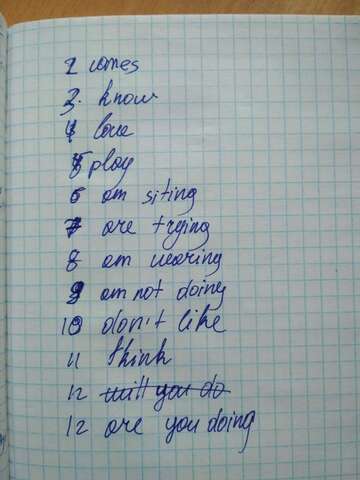 2 comes
3. know
4 love
5 play
6 am siting
7 are trying
8 am wearing
9 am not doing
10 don't like
11 think
12 will you do
12 are you doing